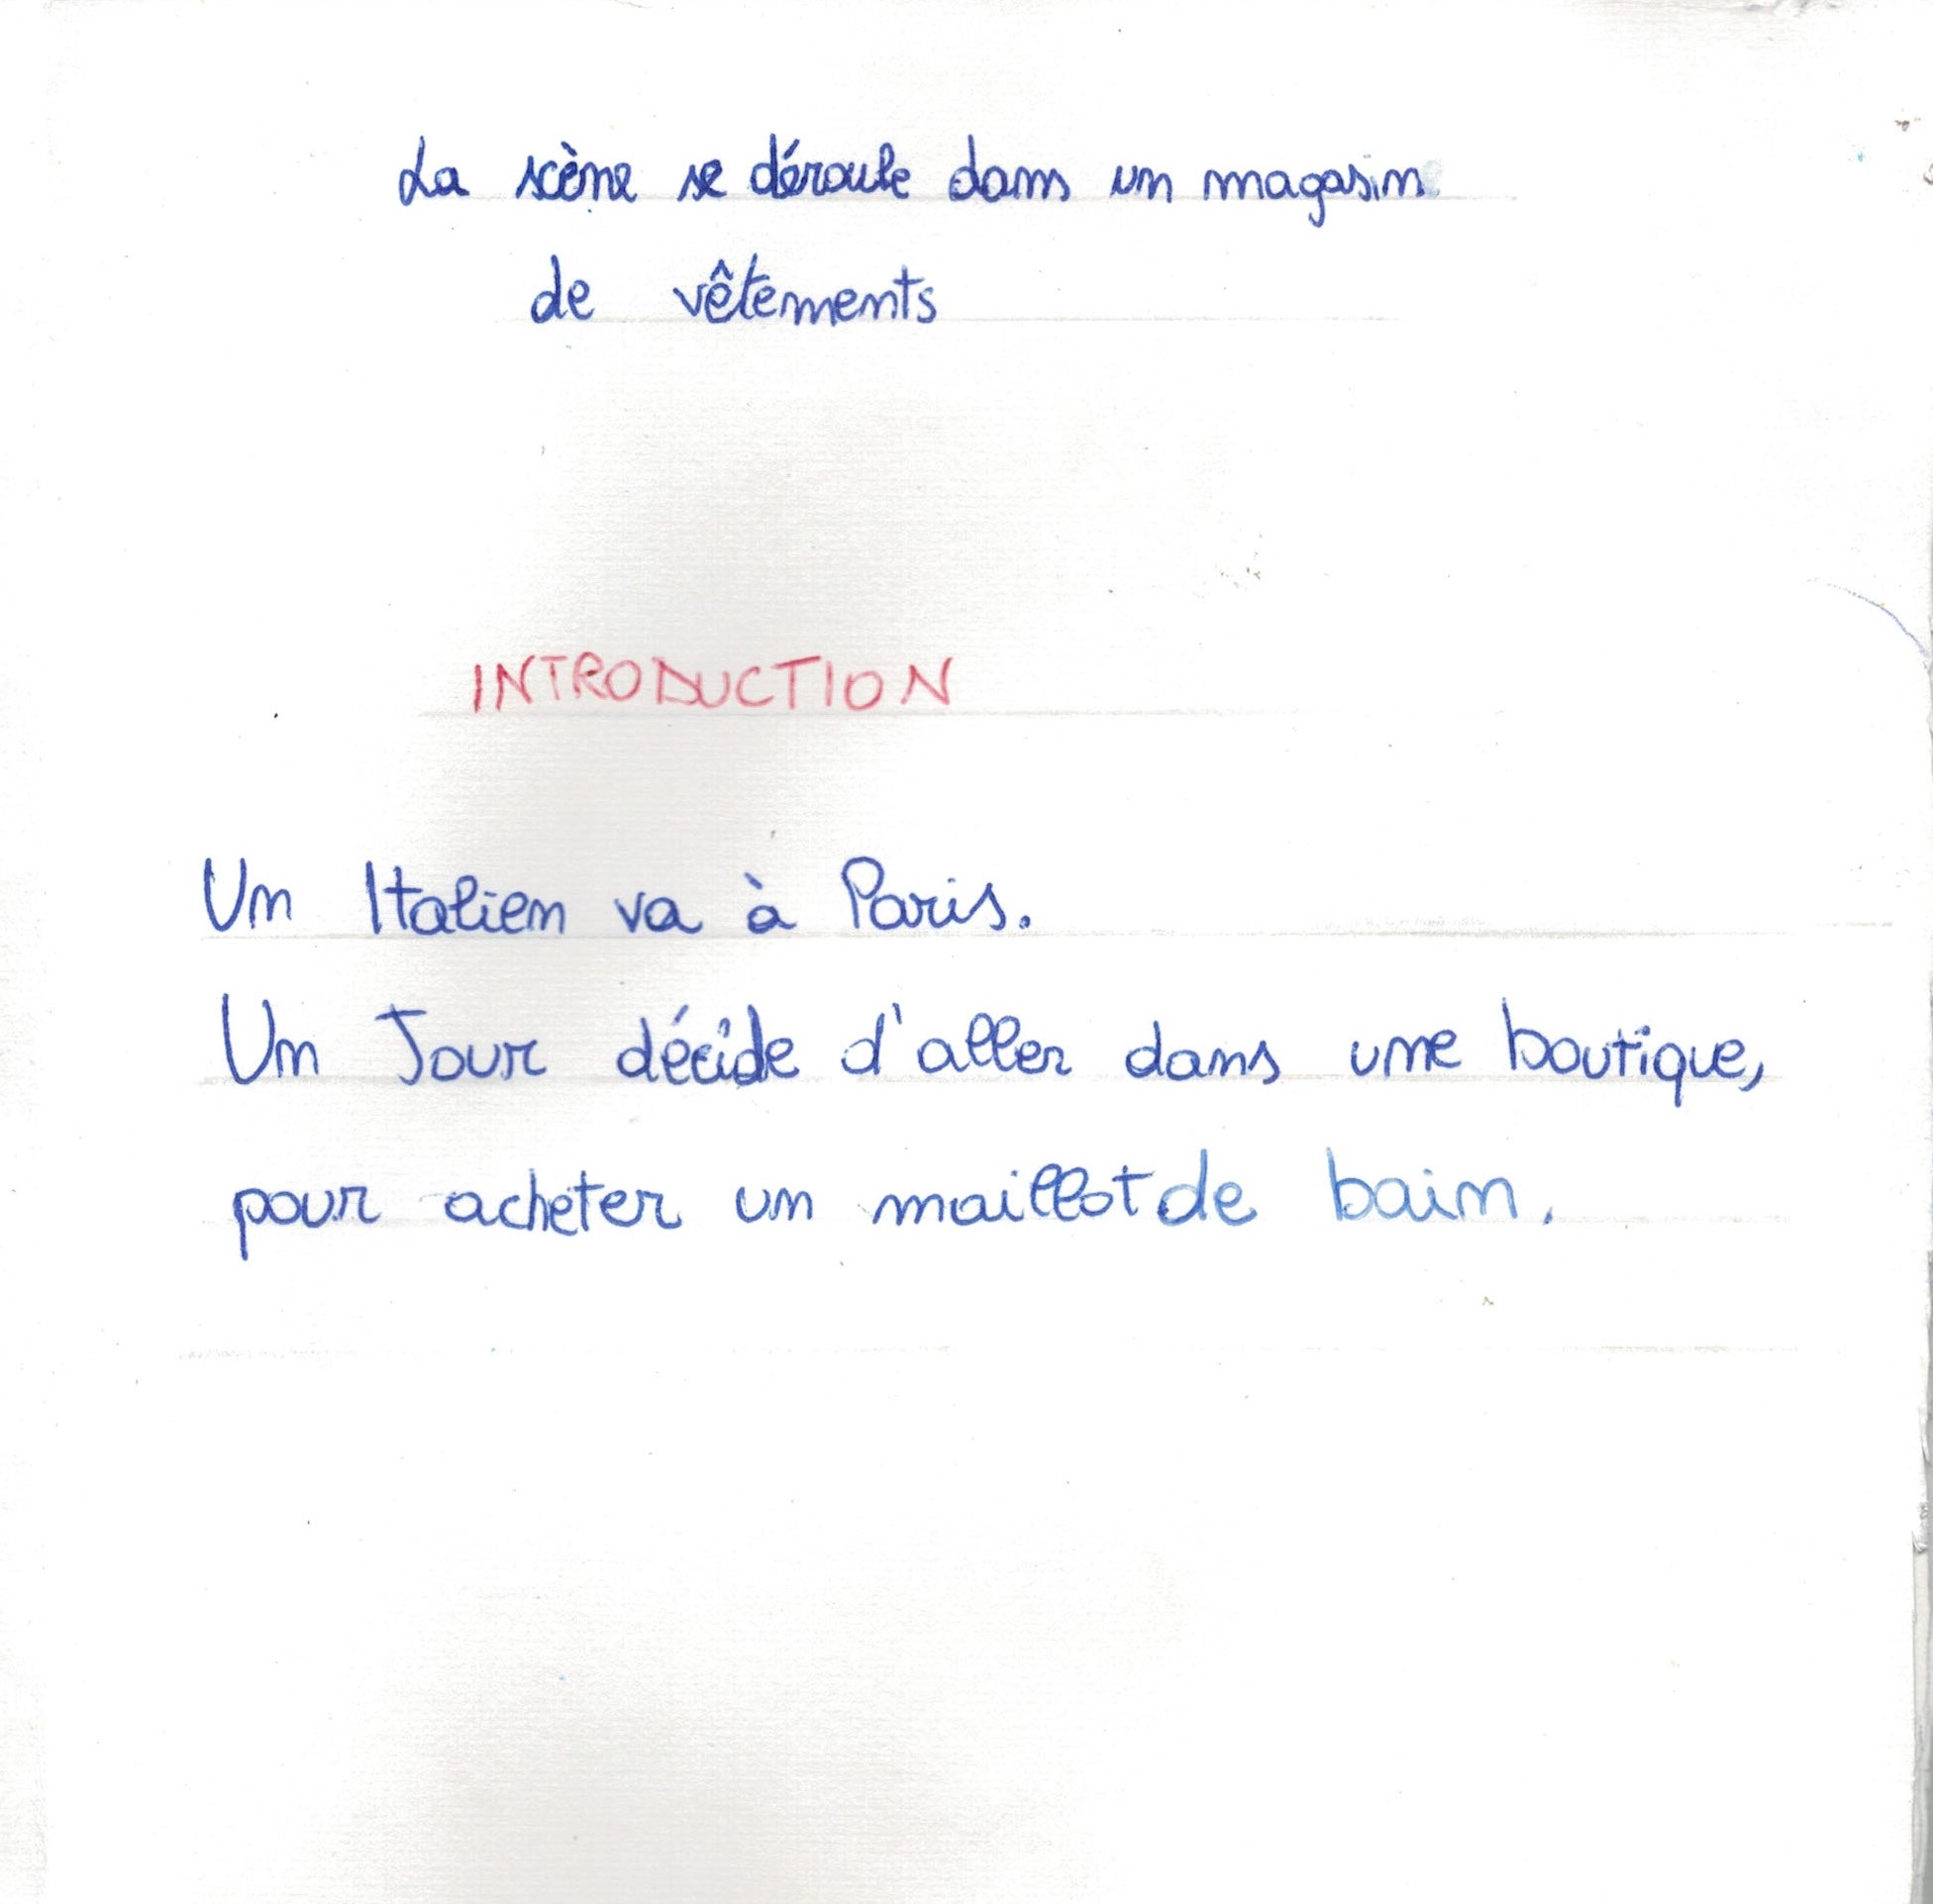 La scène se déroule dans un magasin
de vêtements
INTRODUCTION
Un Italien va à Paris.
Un Jour décide d'aller dans une boutique,
pour acheter un maillot de bain.